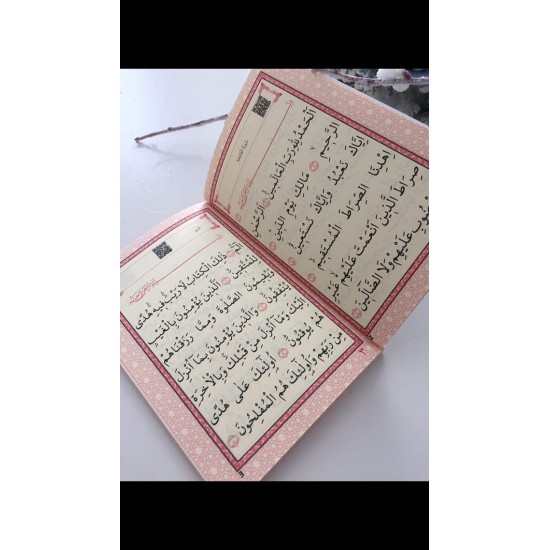 سورة الفاتحة
اَلْحَمْدُ لِلّٰهِ رَبِّ الْعَالَمِينَ اَلرَّحْمٰنِ
الرَّحِيمِ مَالِكِ يَوْمِ الدِّينِ
اِيَّاكَ نَعْبُدُ وَاِيَّاكَ نَسْتَعِينُ
اِهْدِنَا الصِّرَاطَ الْمُسْتَقِيمَ
صِرَاطَ الَّذِينَ اَنْعَمْتَ عَلَيْهِمْ غَيْرِ
الْمَغْضُوبِ عَلَيْهِمْ وَلَا الضَّالِّينَ
الٓمٓ ذٰلِكَ الْكِتَابُ لَا رَيْبَ فِيهِ هُدًى
لِلْمُتَّقِينَ اَلَّذِينَ يُؤْمِنُونَ بِالْغَيْبِ
وَيُقِيمُونَ الصَّلٰوةَ وَمِمَّا رَزَقْنَاهُمْ
يُنْفِقُونَ وَالَّذِينَ يُؤْمِنُونَ بِمَٓا اُنْزِلَ
اِلَيْكَ وَمَٓا اُنْزِلَ مِنْ قَبْلِكَ وَبِالْاٰخِرَةِ
هُمْ يُوقِنُونَ اُولٰٓئِكَ عَلٰى هُدًى
مِنْ رَبِّهِمْ وَاُولٰٓئِكَ هُمُ الْمُفْلِحُونَ